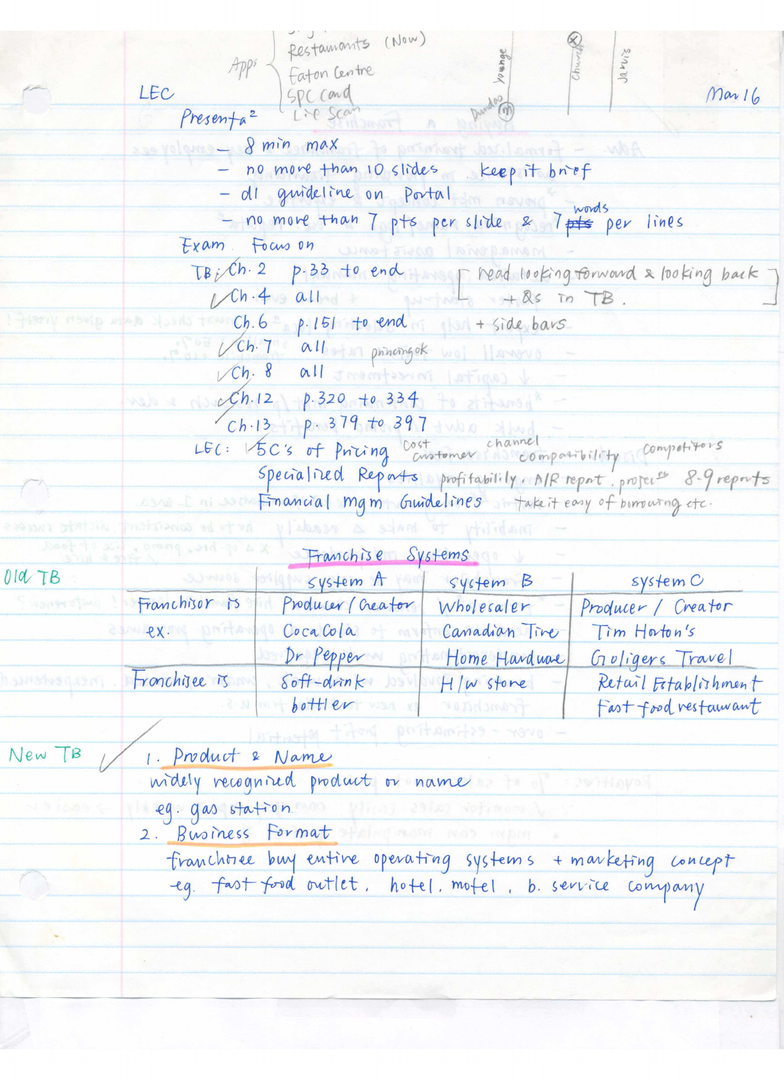 Restaurants (Now)
Apps
Eaton Centre
SPC card
Dundas
Younge
Church
Jarvis
LEC
Mar 16
Presenta²
- 8 min max
- no more than 10 slides keep it brief
- dl guideline on Portal
- no more than 7 pts per slide & 7 words per lines
Exam Focus on
TB: Ch. 2 p.33 to end [ read looking forward & looking back
Ch. 4 all + Qs in TB. ]
Ch. 6 p.151 to end + side bars
Ch. 7 all princing ok
Ch. 8 all
Ch. 12 p. 320 to 334
Ch. 13 p. 379 to 397
LEC: 5C's of Pricing cost customer channel compatibility competitors
Specialized Reports profitability, A/R report, 8-9 reports
Financial mgm Guidelines - take it easy of borrowing etc.
Franchise Systems
Old TB
system A system B system C
Franchisor is Producer/Creator Wholesaler Producer / Creator
ex. Coca Cola Canadian Tire Tim Horton's
Dr Pepper Home Hardware Goligers Travel
Franchisee is Soft-drink H/W store Retail Establishment
bottler Fast food restaurant
New TB
1. Product & Name
widely recognized product or name
eg. gas station
2. Business Format
franchisee buy entire operating systems + marketing concept
eg. fast food outlet, hotel, motel, b. service company